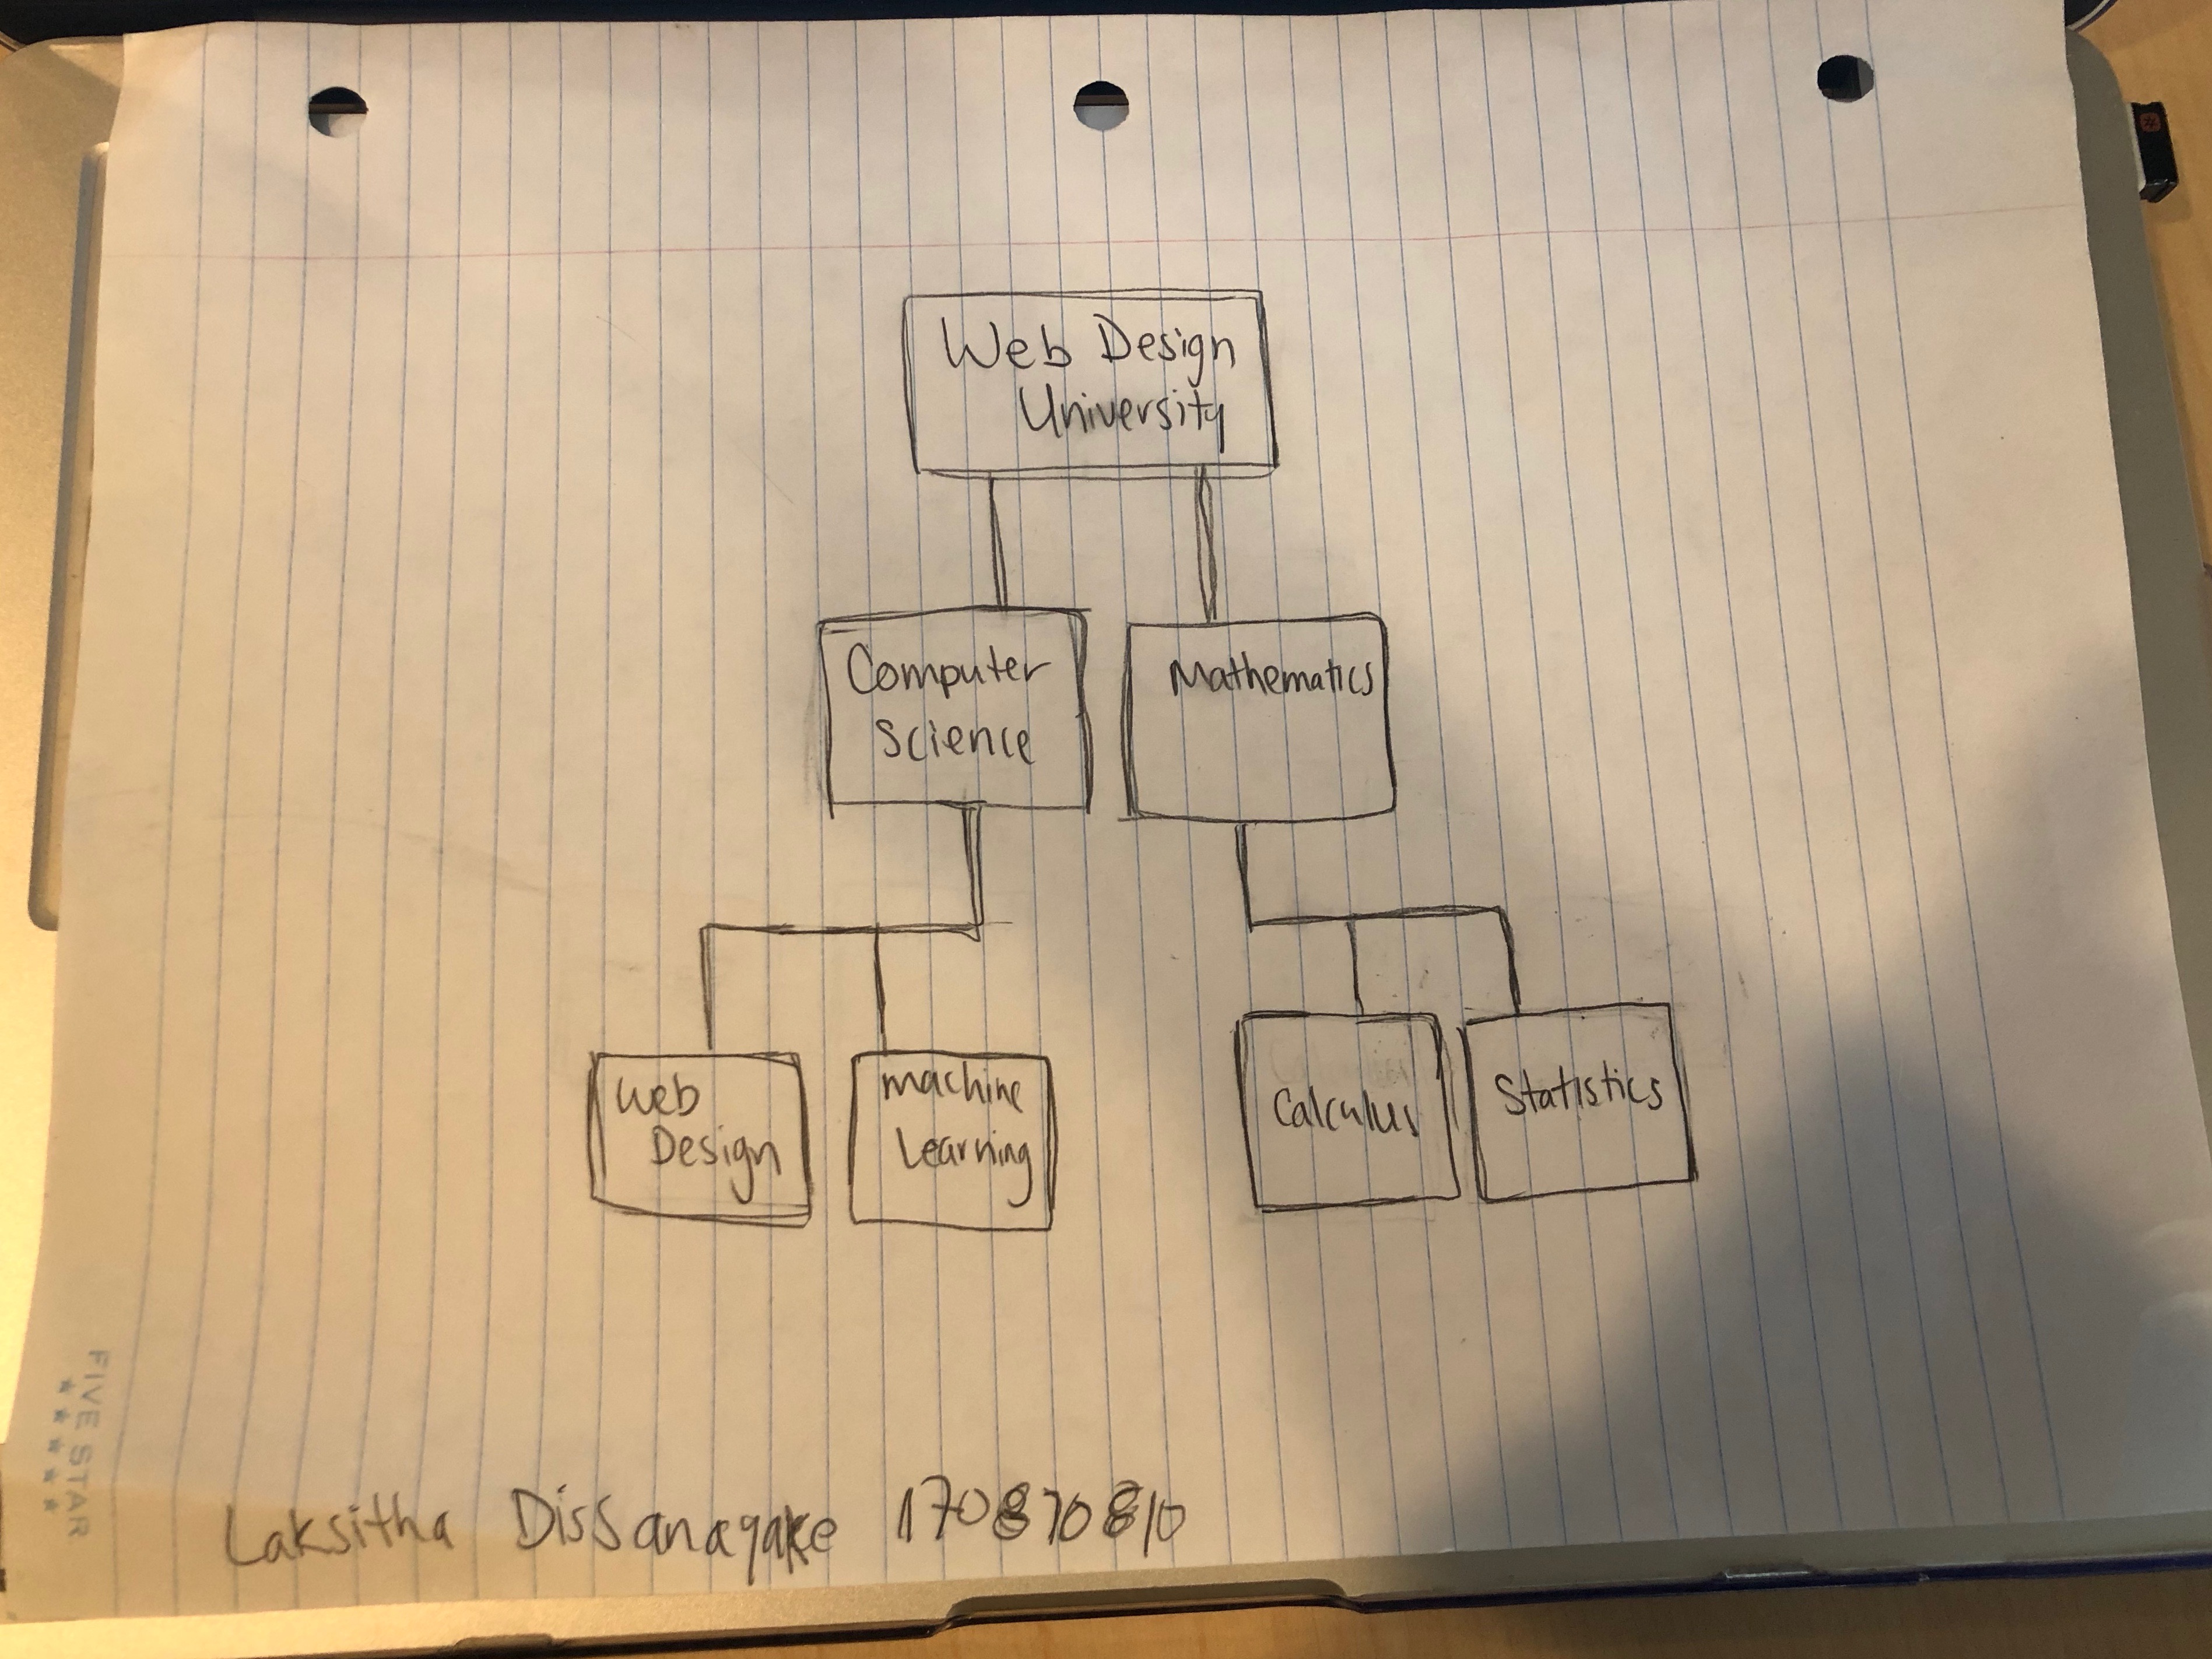 Web Design
University
Computer
Science
Mathematics
Web
Design
Machine
Learning
Calculus
Statistics
Laksitha Dissanayake 170870810
FIVE STAR
★★★★★